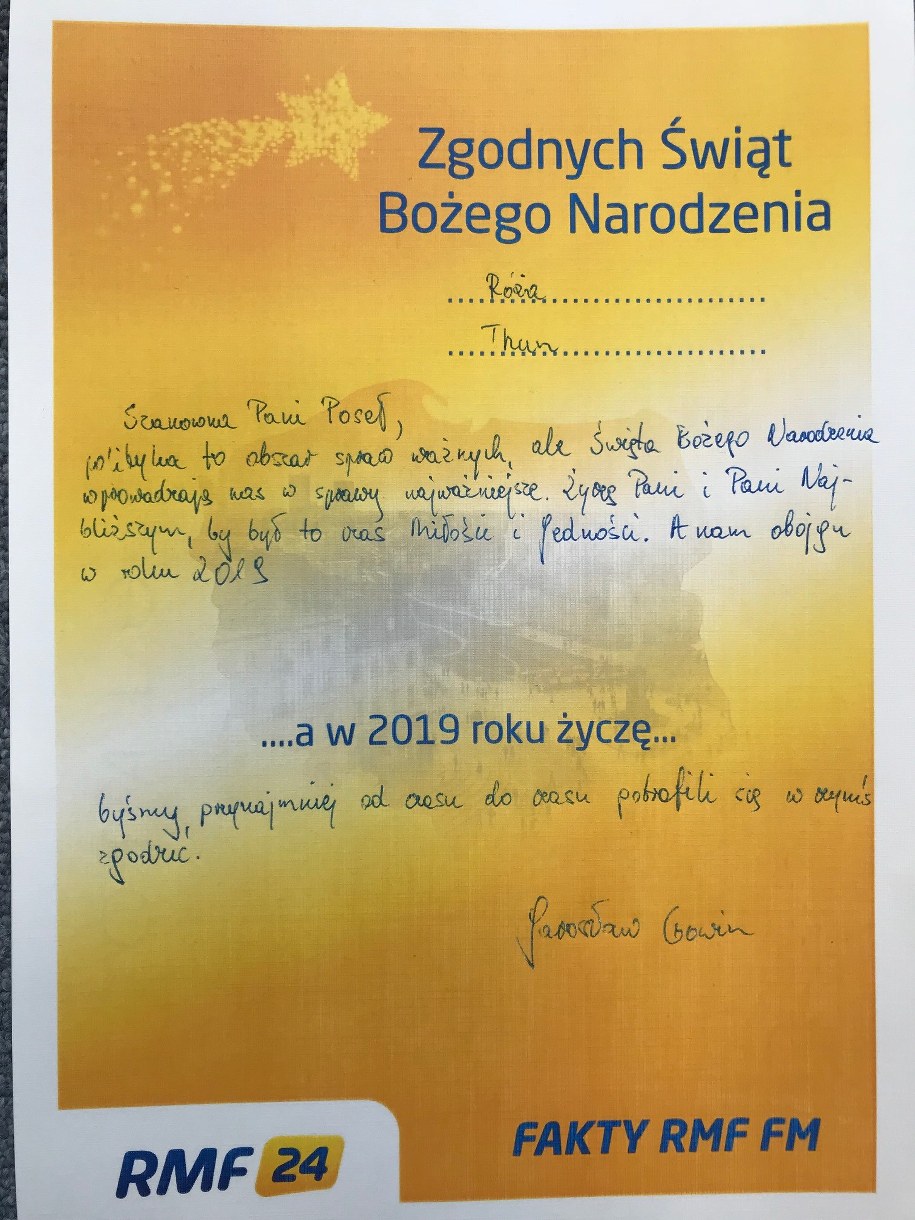 Zgodnych Świąt
Bożego Narodzenia
Róża
Thun
Szanowna Pani Poseł,
polityka to obszar spraw ważnych, ale Święta Bożego Narodzenia
wprowadzają nas w sprawy najważniejsze. Życzę Pani i Pani Naj-
bliższym, by był to czas Miłości i Jedności. A nam obojgu
w roku 2019
....a w 2019 roku życzę...
byśmy, przynajmniej od czasu do czasu potrafili się w czymś
zgodzić.
Jarosław Gowin
FAKTY RMF FM
RMF 24